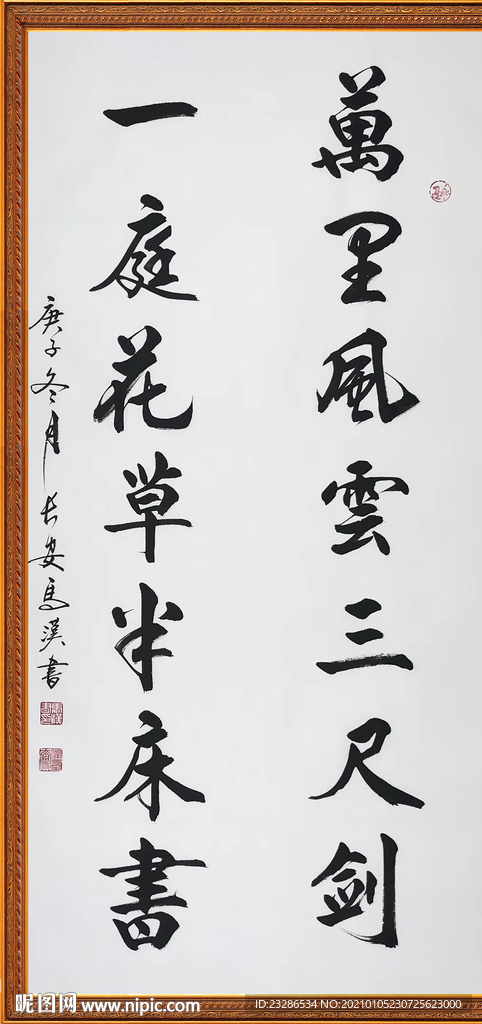 萬里風雲三尺劍
一庭花草半床書
庚子冬月長安馬漢書
昵图网 www.nipic.com
ID:23286534 NO:20210105230725623000